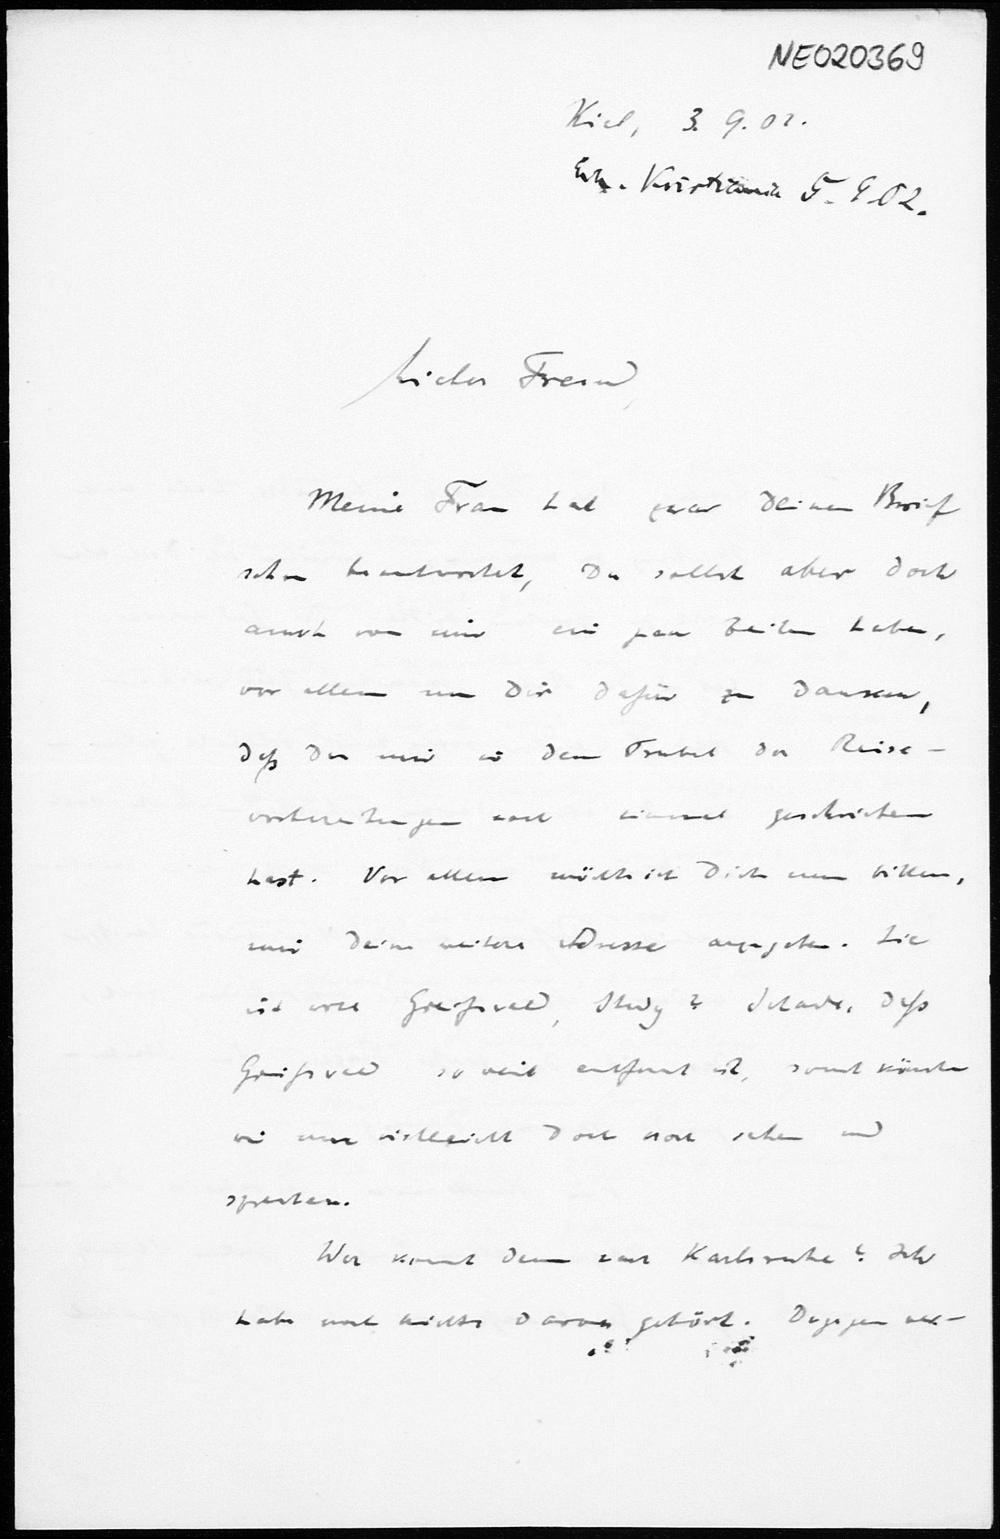 NE020369
Kiel, 3. 9. 02.
Erh. Kristiania 5. 9. 02.
Lieber Freund,
Meine Frau hat zwar Deinen Brief
schon beantwortet, Du sollst aber doch
auch von mir ein paar Zeilen haben,
vor allem um Dir dafür zu danken,
daß Du mir in dem Trubel der Reise-
vorbereitungen noch einmal geschrieben
hast. Vor allem möchte ich Dich nun bitten,
mir Deine weitere Adresse anzugeben. Sie
ist wohl Greifswald, Study? Schade, daß
Greifswald so weit entfernt ist, sonst könnten
wir uns vielleicht doch noch sehen und
sprechen.
Wer kommt denn nach Karlsruhe? Ich
habe noch nichts davon gehört. Dagegen ver-